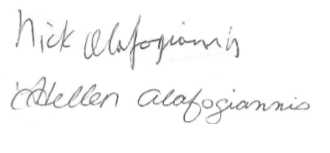 Nick Alafogiannis
Hellen Alafogiannis